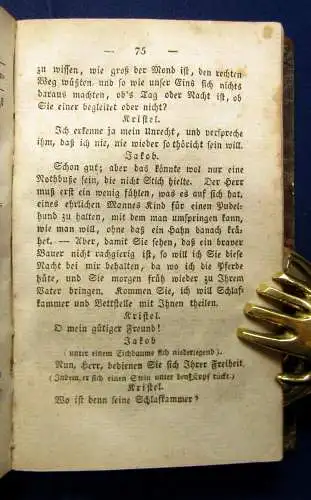 — 75 —
zu wissen, wie groß der Mond ist, den rechten
Weg wüßten, und so wie unser Eins sich nichts
daraus machten, ob's Tag oder Nacht ist, ob
Sie einer begleitet oder nicht?
Kristel.
Ich erkenne ja mein Unrecht, und verspreche
ihm, daß ich nie, nie wieder so thöricht sein will.
Jakob.
Schon gut; aber das könnte wol nur eine
Nothbuße sein, die nicht Stich hielte. Der Herr
muß erst ein wenig fühlen, was es auf sich hat,
eines ehrlichen Mannes Kind für einen Pudel-
hund zu halten, mit dem man umspringen kann,
wie man will, ohne daß ein Hahn danach krä-
het. — Aber, damit Sie sehen, daß ein braver
Bauer nicht rachgierig ist, so will ich Sie diese
Nacht bei mir behalten, da wo ich die Pferde
hüte, und Sie morgen früh wieder zu Ihrem
Vater bringen. Kommen Sie, ich will Schlaf-
kammer und Bettstelle mit Ihnen theilen.
Kristel.
O mein gütiger Freund!
Jakob
(unter einem Eichbaume sich niederlegend).
Nun, Herr, bedienen Sie sich Ihrer Freiheit.
(Indem er sich einen Stein unter den Kopf rückt.)
Kristel.
Wo ist denn seine Schlafkammer?